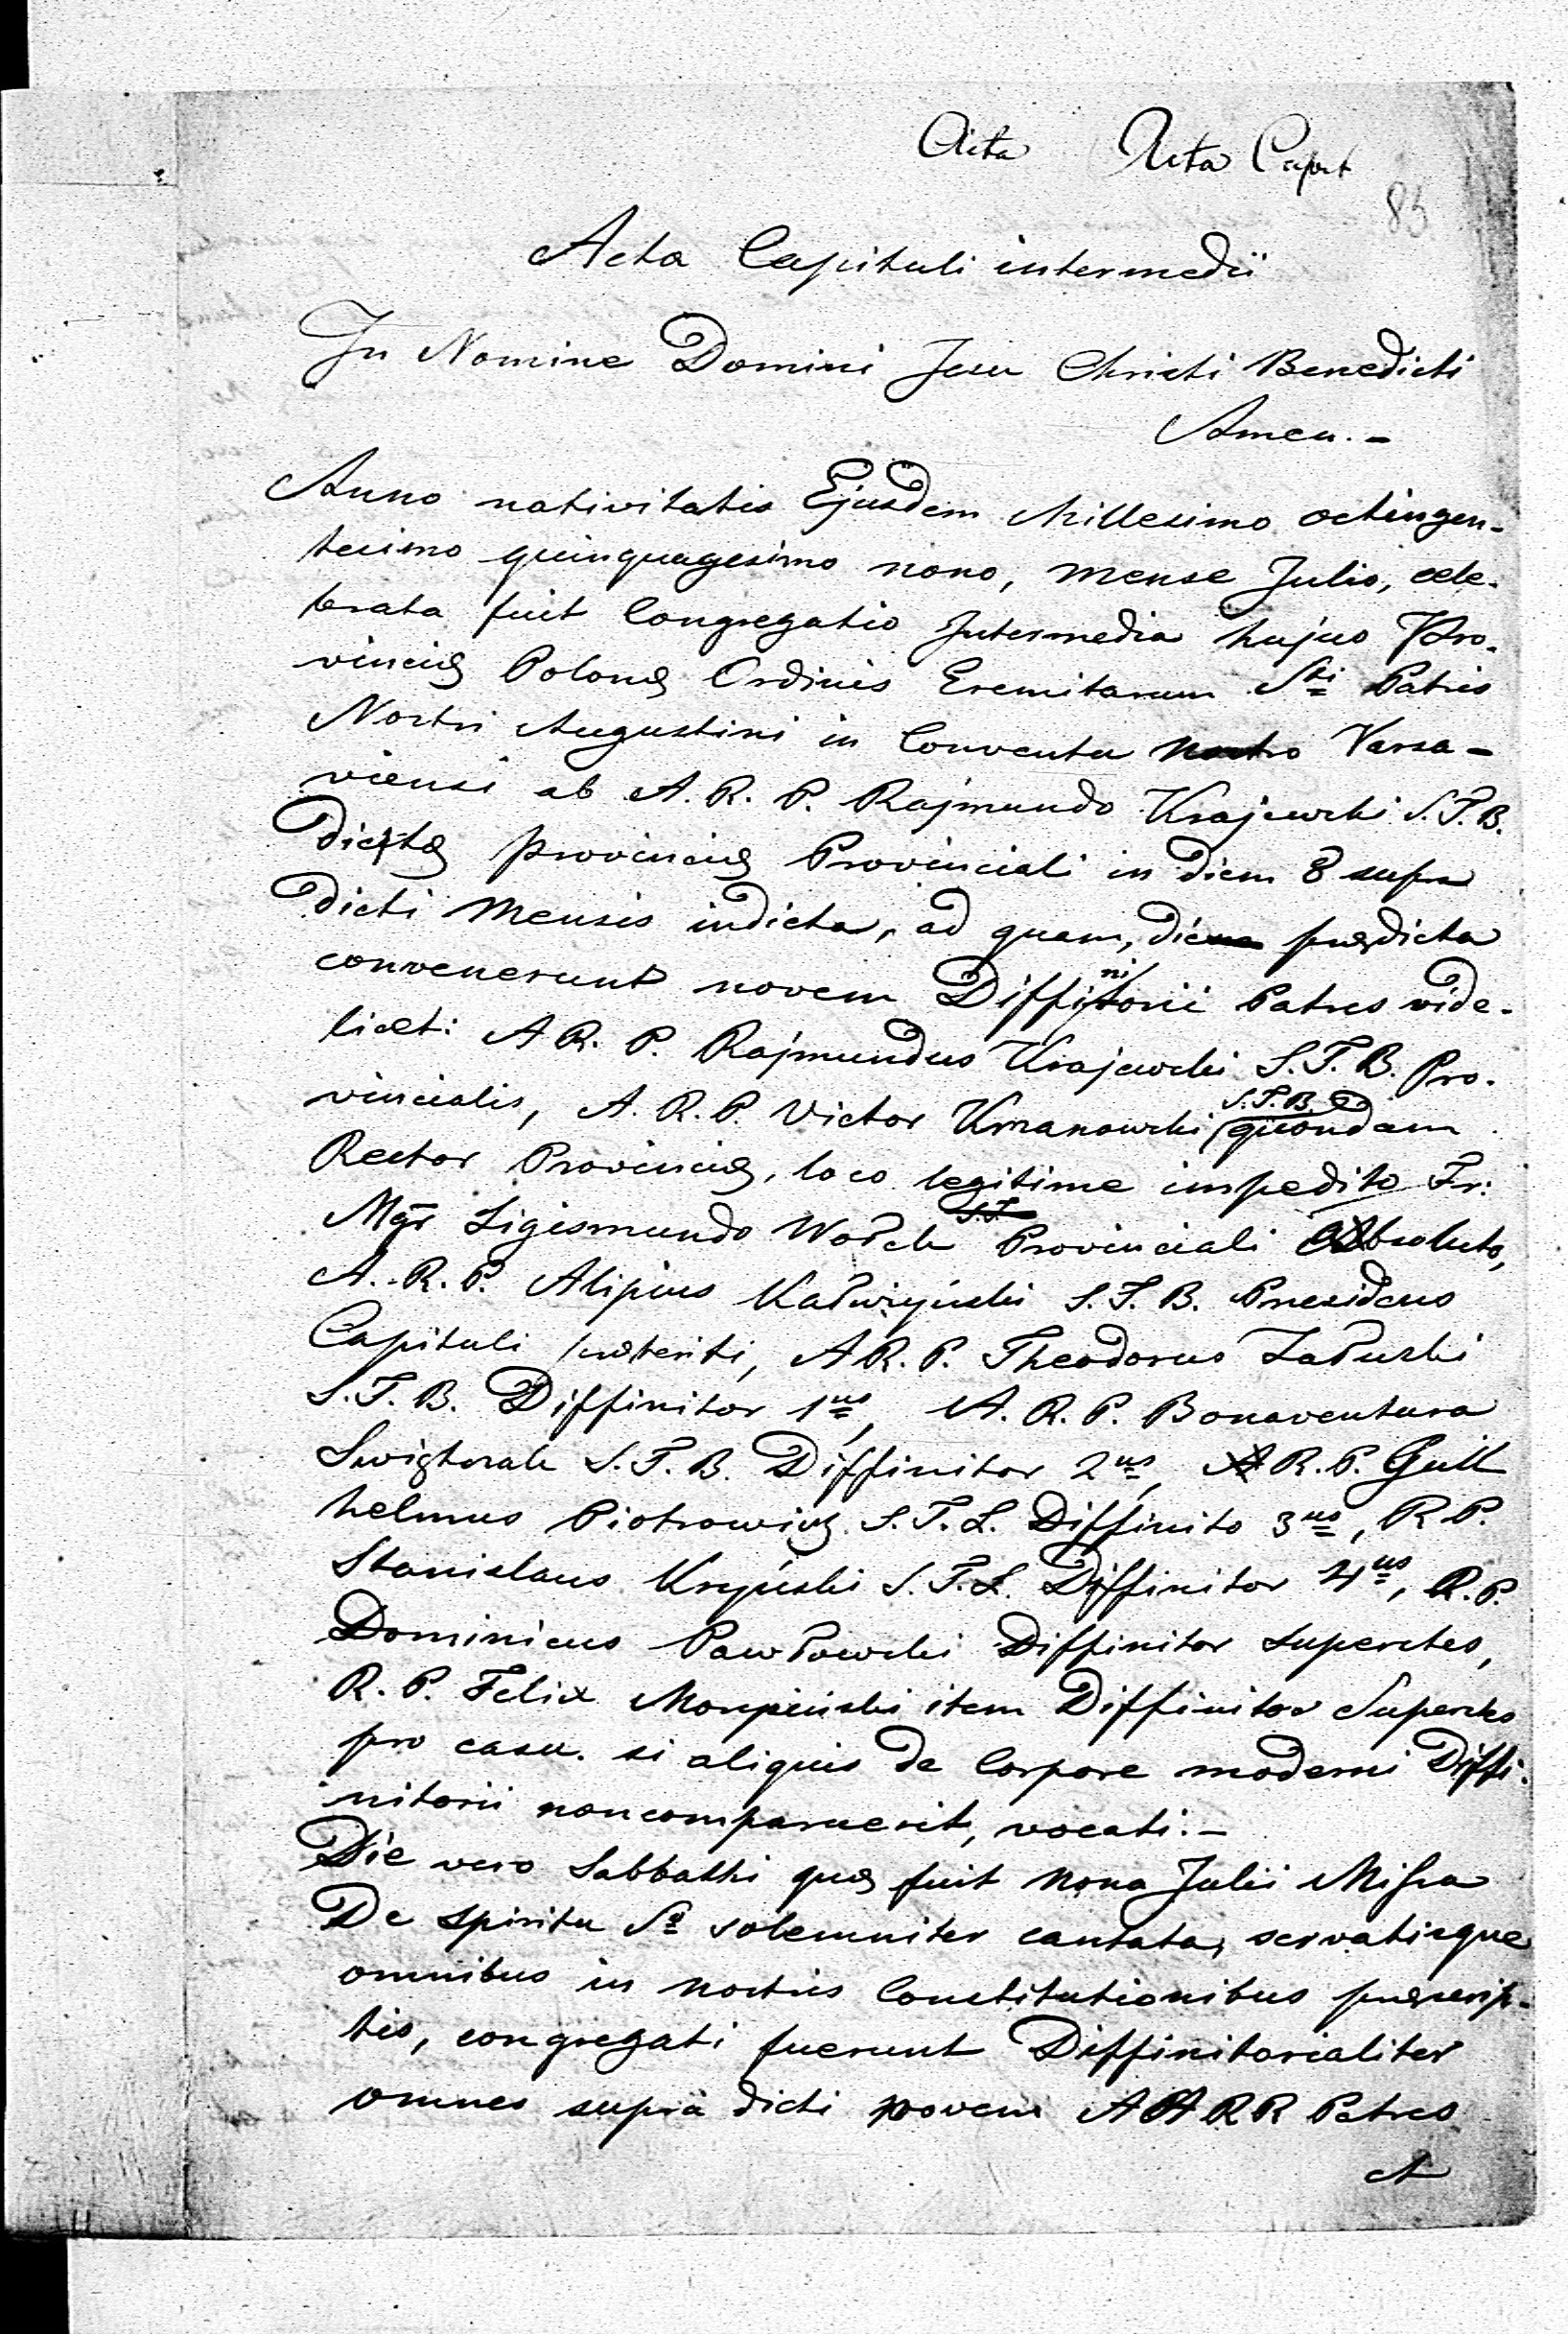 Acta Acta Caput
85
Acta Capituli intermedii
In Nomine Domini Jesu Christi Benedicti
Amen. –
Anno nativitatis Ejusdem Millesimo octingen-
tesimo quinquagesimo nono, mense Julio, cele-
brata fuit Congregatio Intermedia hujus Pro-
vinciæ Polonæ Ordinis Eremitarum Sti Patris
Nostri Augustini in Conventu nostro Varsa-
viensi ab A. R. P. Rajmundo Krajewski S.T.B.
dictæ provinciæ Provinciali in diem 8 supra
dicti mensis indicta, ad quam, die prædicta
convenerunt novem Diffinitorii Patres vide-
licet: A R. P. Rajmundus Krajewski S.T.B. Pro-
vincialis, A. R. P. Victor Kmanowski S.T.B. quondam
Rector Provinciæ, loco legitime impedito Fr:
Mgr Zigismundo Wołek Provinciali Absoluto,
A. R. P. Alipius Kałwiyński S.T.B. Presidens
Capituli præteriti, A R. P. Theodorus Załuski
S.T.B. Diffinitor 1us, A. R. P. Bonaventura
Swiętorak S.T.B. Diffinitor 2us, A R. P. Guill
helmus Piotrowicz S.T.L. Diffinito 3us, R P.
Stanislaus Kryński S.T.L. Diffinitor 4us, R. P.
Dominicus Pawłowski Diffinitor Superstes,
R. P. Felix item Diffinitor Superstes
pro casu. si aliquis de Corpore moderni Diffi-
nitorii noncomparuerit, vocati. –
Die vero Sabbathi quæ fuit nona Julii Missa
De Spiritu So solemniter cantata, servatisque
omnibus in nostris Constitutionibus præscrip-
tis, congregati fuerunt Diffinitorialiter
omnes supra dicti novem A A R R Patres
A